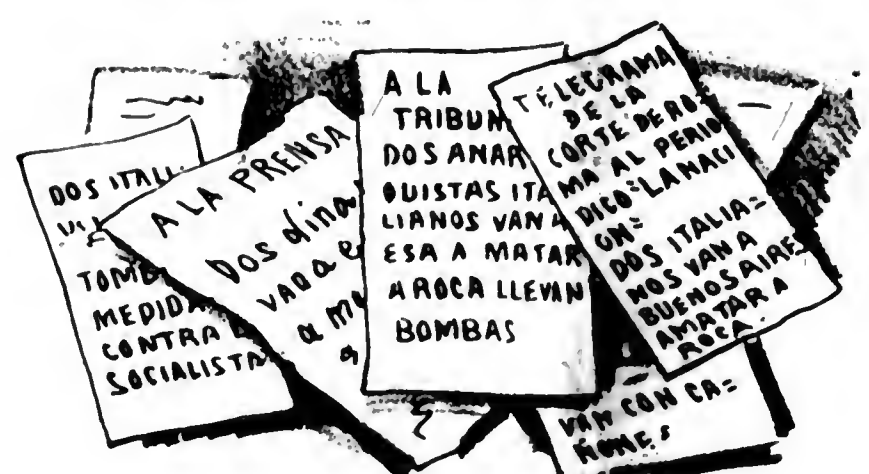 DOS ITALI
TOME
MEDIDA
CONTRA
SOCIALISTA
A LA PRENSA
Dos dina
van a
a ma
A LA
TRIBUN
DOS ANAR
QUISTAS ITA
LIANOS VAN A
ESA A MATAR
A ROCA LLEVAN
BOMBAS
TELEGRAMA
DE LA
CORTE DE RO=
MA AL PERIO
DICO "LA NACI
ON=
DOS ITALIA=
NOS VAN A
BUENOS AIRES
A MATAR A
ROCA.
VAN CON CA=
ÑONES